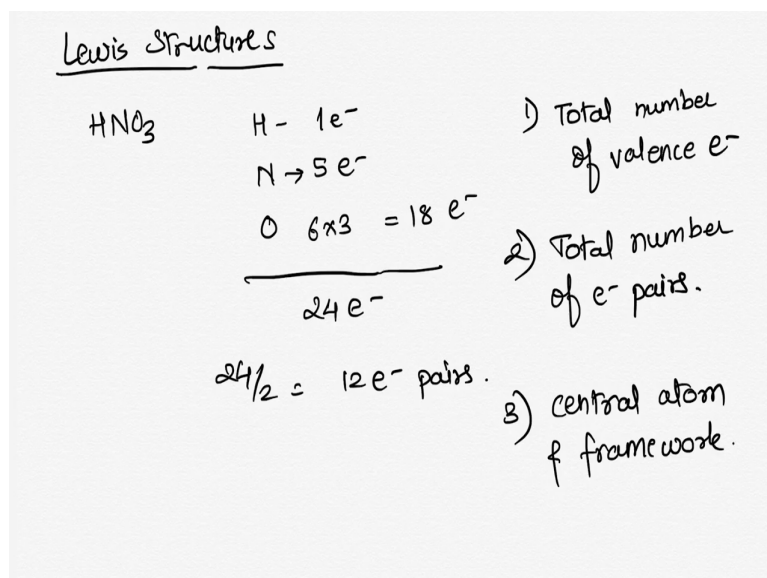 Lewis Structures
HNO3
H - 1e-
N → 5 e-
O 6x3 = 18 e-
24 e-
24/2 = 12 e- pairs.
1) Total number
of valence e-
2) Total number
of e- pairs.
3) central atom
& framework.